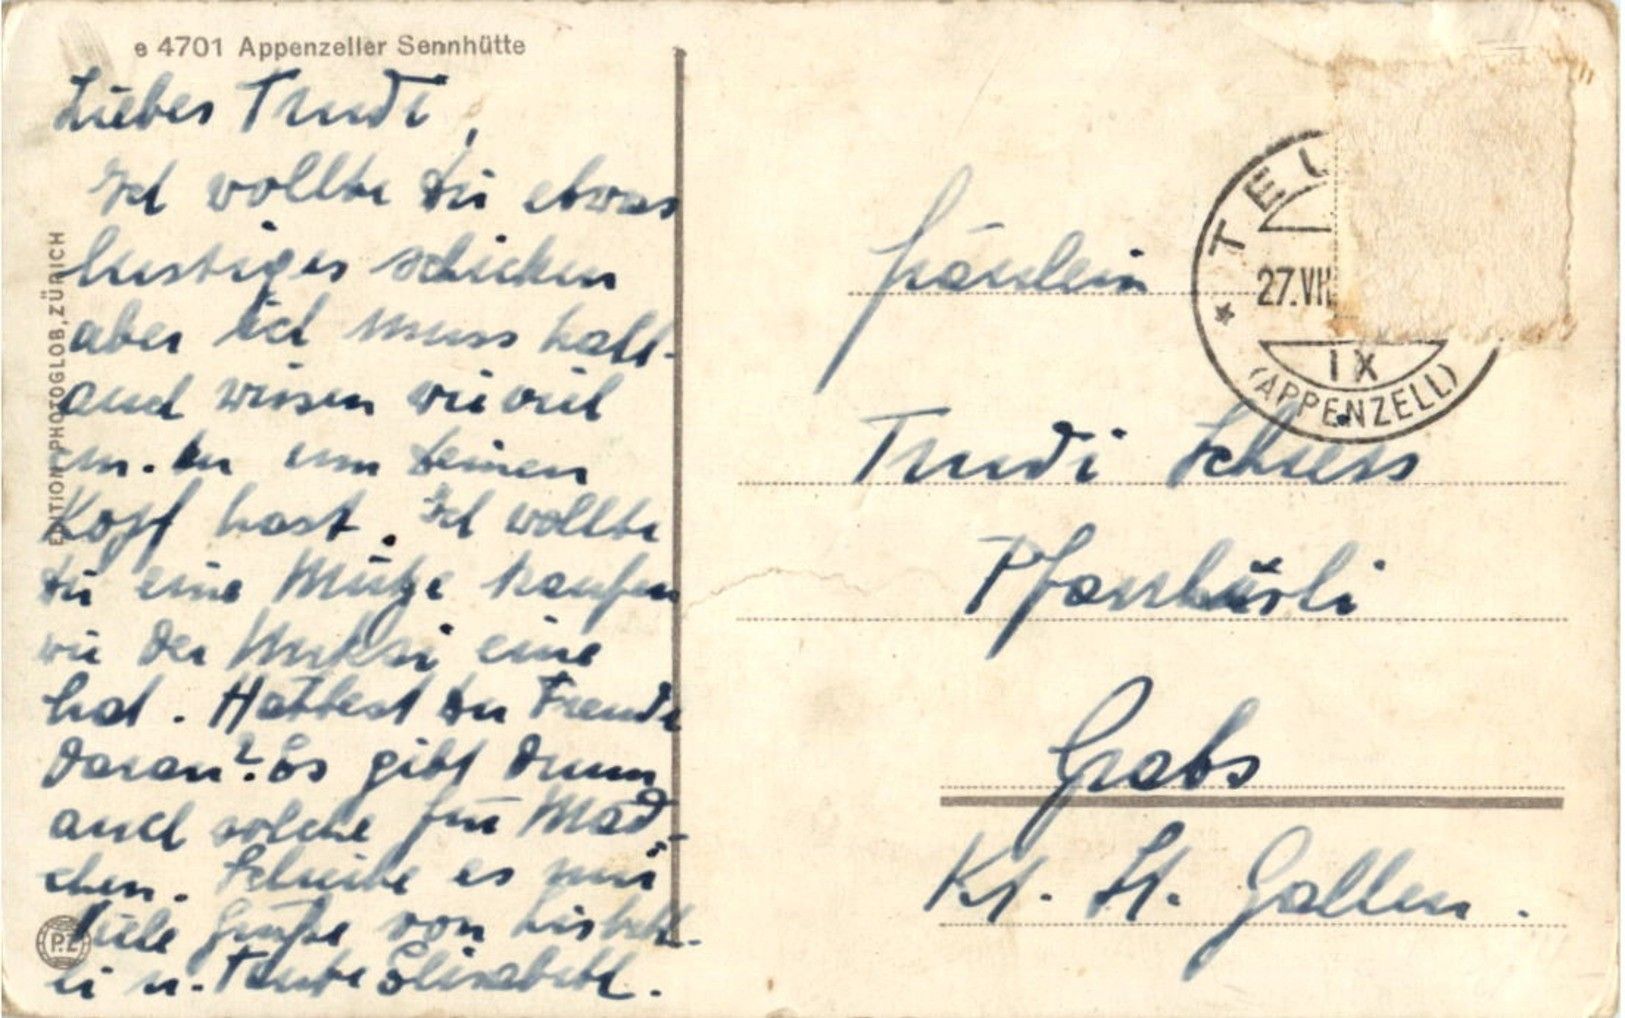 e 4701 Appenzeller Sennhütte
Liebes Trudi,
Ich wollte dir etwas
lustiges schicken
aber ich muss halt
auch wissen wieviel
um deinen
Kopf hast. Ich wollte
dir eine Mütze kaufen
wie der eine
hat. Hättest du Freude
daran? Es gibt drum
auch solche für Mäd-
chen. Schreibe es mir
Viele Grüße von Lisbeth-
li u. Tante Elisabeth.
EDITION PHOTOGLOB, ZÜRICH
P.Z
TEU
27.VII
IX
(APPENZELL)
Fräulein
Trudi Schiess
Grabs
Kt. St. Gallen.